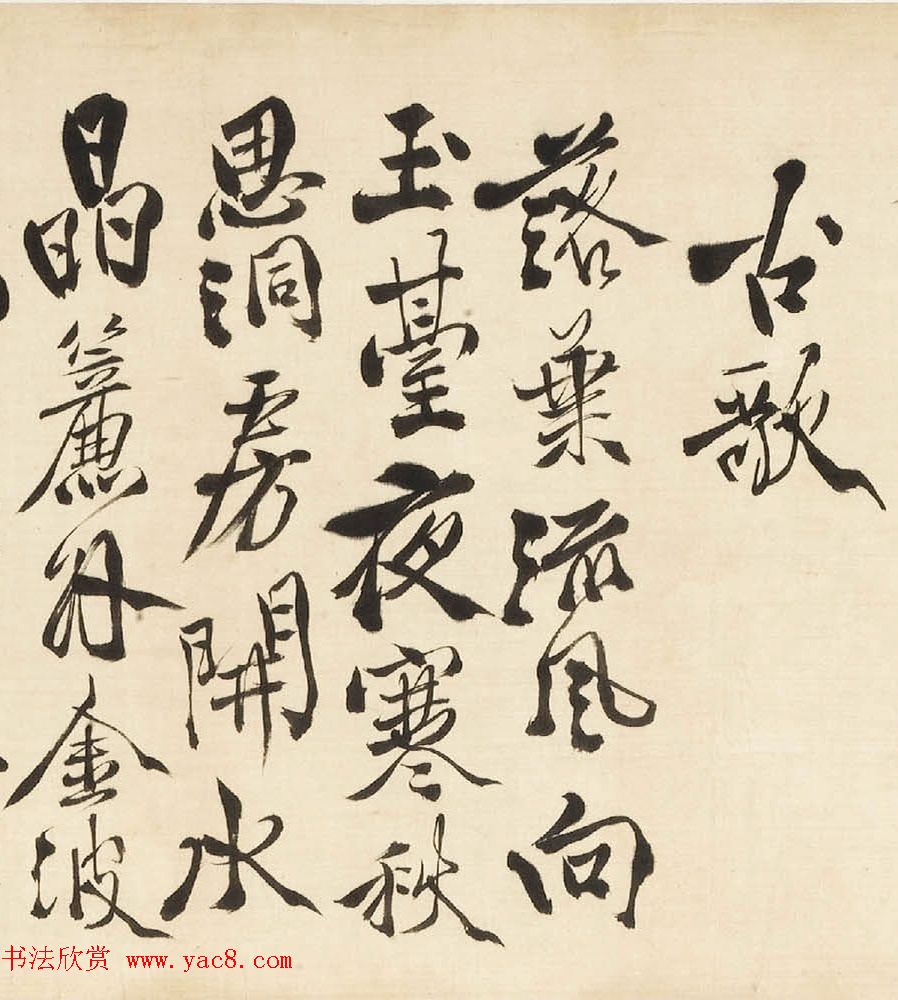 古歌
落葉流風向
玉臺夜寒秋
思洞房開水
晶簾外金波
书法欣赏 www.yac8.com